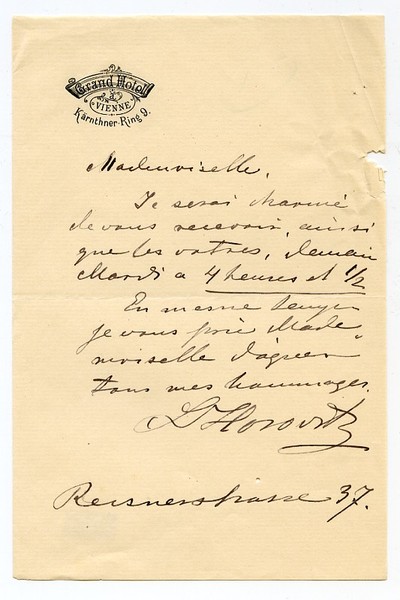 Grand Hotel
VIENNE
Kärnthner-Ring 9.
Mademoiselle,
Je serai charmé
de vous recevoir, ainsi
que les votres, demain
Mardi a 4 heures et 1/2
En meme temps
je vous prie Made
moiselle d'agréer
tous mes hommages.
L Horovitz
Reisnerstrasse 37.